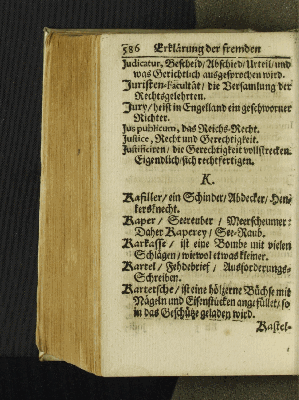 586 Erklärung der fremden
Judicatur, Bescheid/Abschied/Urteil/und
was Gerichtlich ausgesprochen wird.
Juristen-Facultät/ die Versamlung der
Rechtsgelehrten.
Jury/ heist in Engelland ein geschworner
Richter.
Jus publicum, das Reichs-Recht.
Justice, Recht und Gerechtigkeit.
Justificiren/ die Gerechtigkeit vollstrecken.
Eigendlich/sich rechtfertigen.
K.
Kafiller/ ein Schinder/Abdecker/Hen-
kersknecht.
Kaper/ Seereuber/ Meerscheumer:
Daher Kaperey/ See-Raub.
Karkasse/ ist eine Bombe mit vielen
Schlägen/wiewol etwas kleiner.
Kartel/ Fehdebrief/ Ausforderungs-
Schreiben.
Kartetsche/ ist eine hölzerne Büchse mit
Nägeln und Eisenstücken angefüllet/ so
in das Geschütze geladen wird.
Kastel-